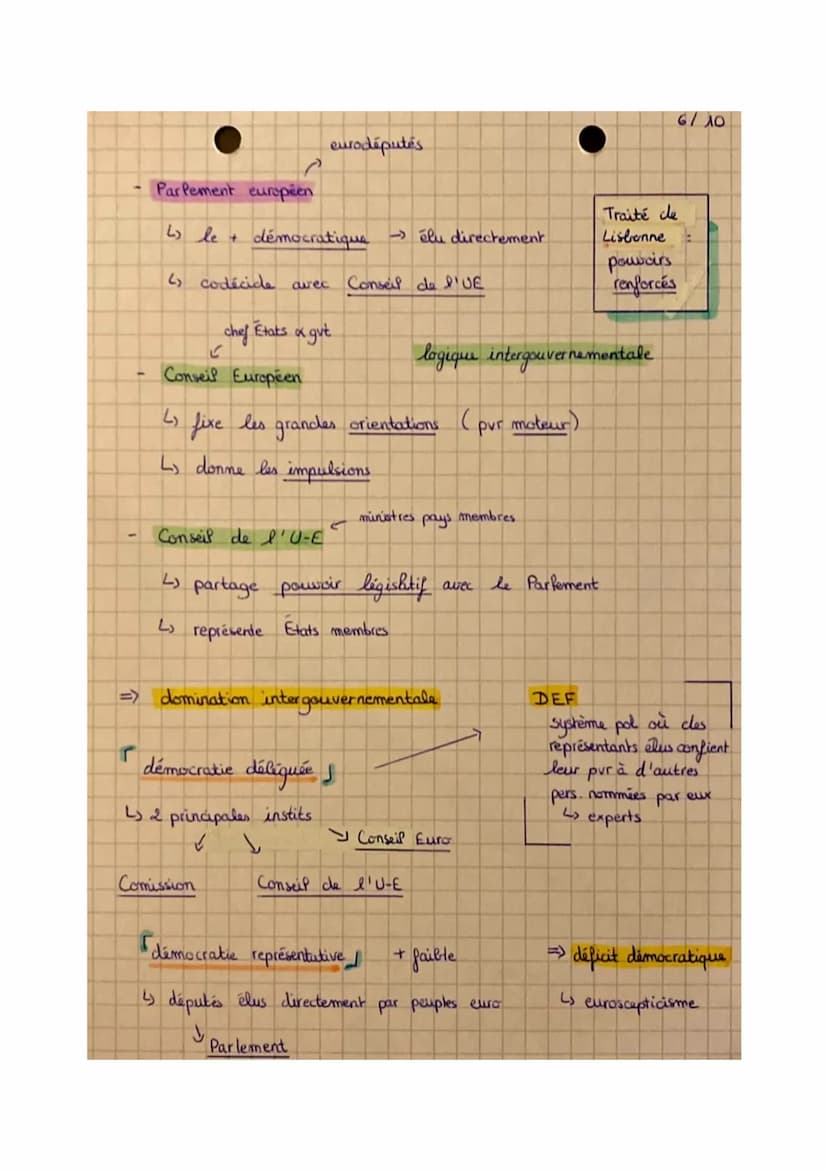 6/10
eurodéputés
- Parlement européen
↳ le + démocratique → élu directement
↳ codécide avec Conseil de l'UE
Traité de
Lisbonne :
pouvoirs
renforcés
chef États & gvt
logique intergouvernementale
- Conseil Européen
↳ fixe les grandes orientations (pvr moteur)
↳ donne les impulsions
ministres pays membres
- Conseil de l'U-E
↳ partage pouvoir législatif avec le Parlement
↳ représente États membres
⇒ domination intergouvernementale
「démocratie déléguée」
↳ 2 principales instits
Conseil Euro
Comission Conseil de l'U-E
DEF
système pol où des
représentants élus confient
leur pvr à d'autres
pers. nommées par eux
↳ experts
「démocratie représentative」 + faible ⇒ déficit démocratique
↳ députés élus directement par peuples euro ↳ euroscepticisme
Parlement